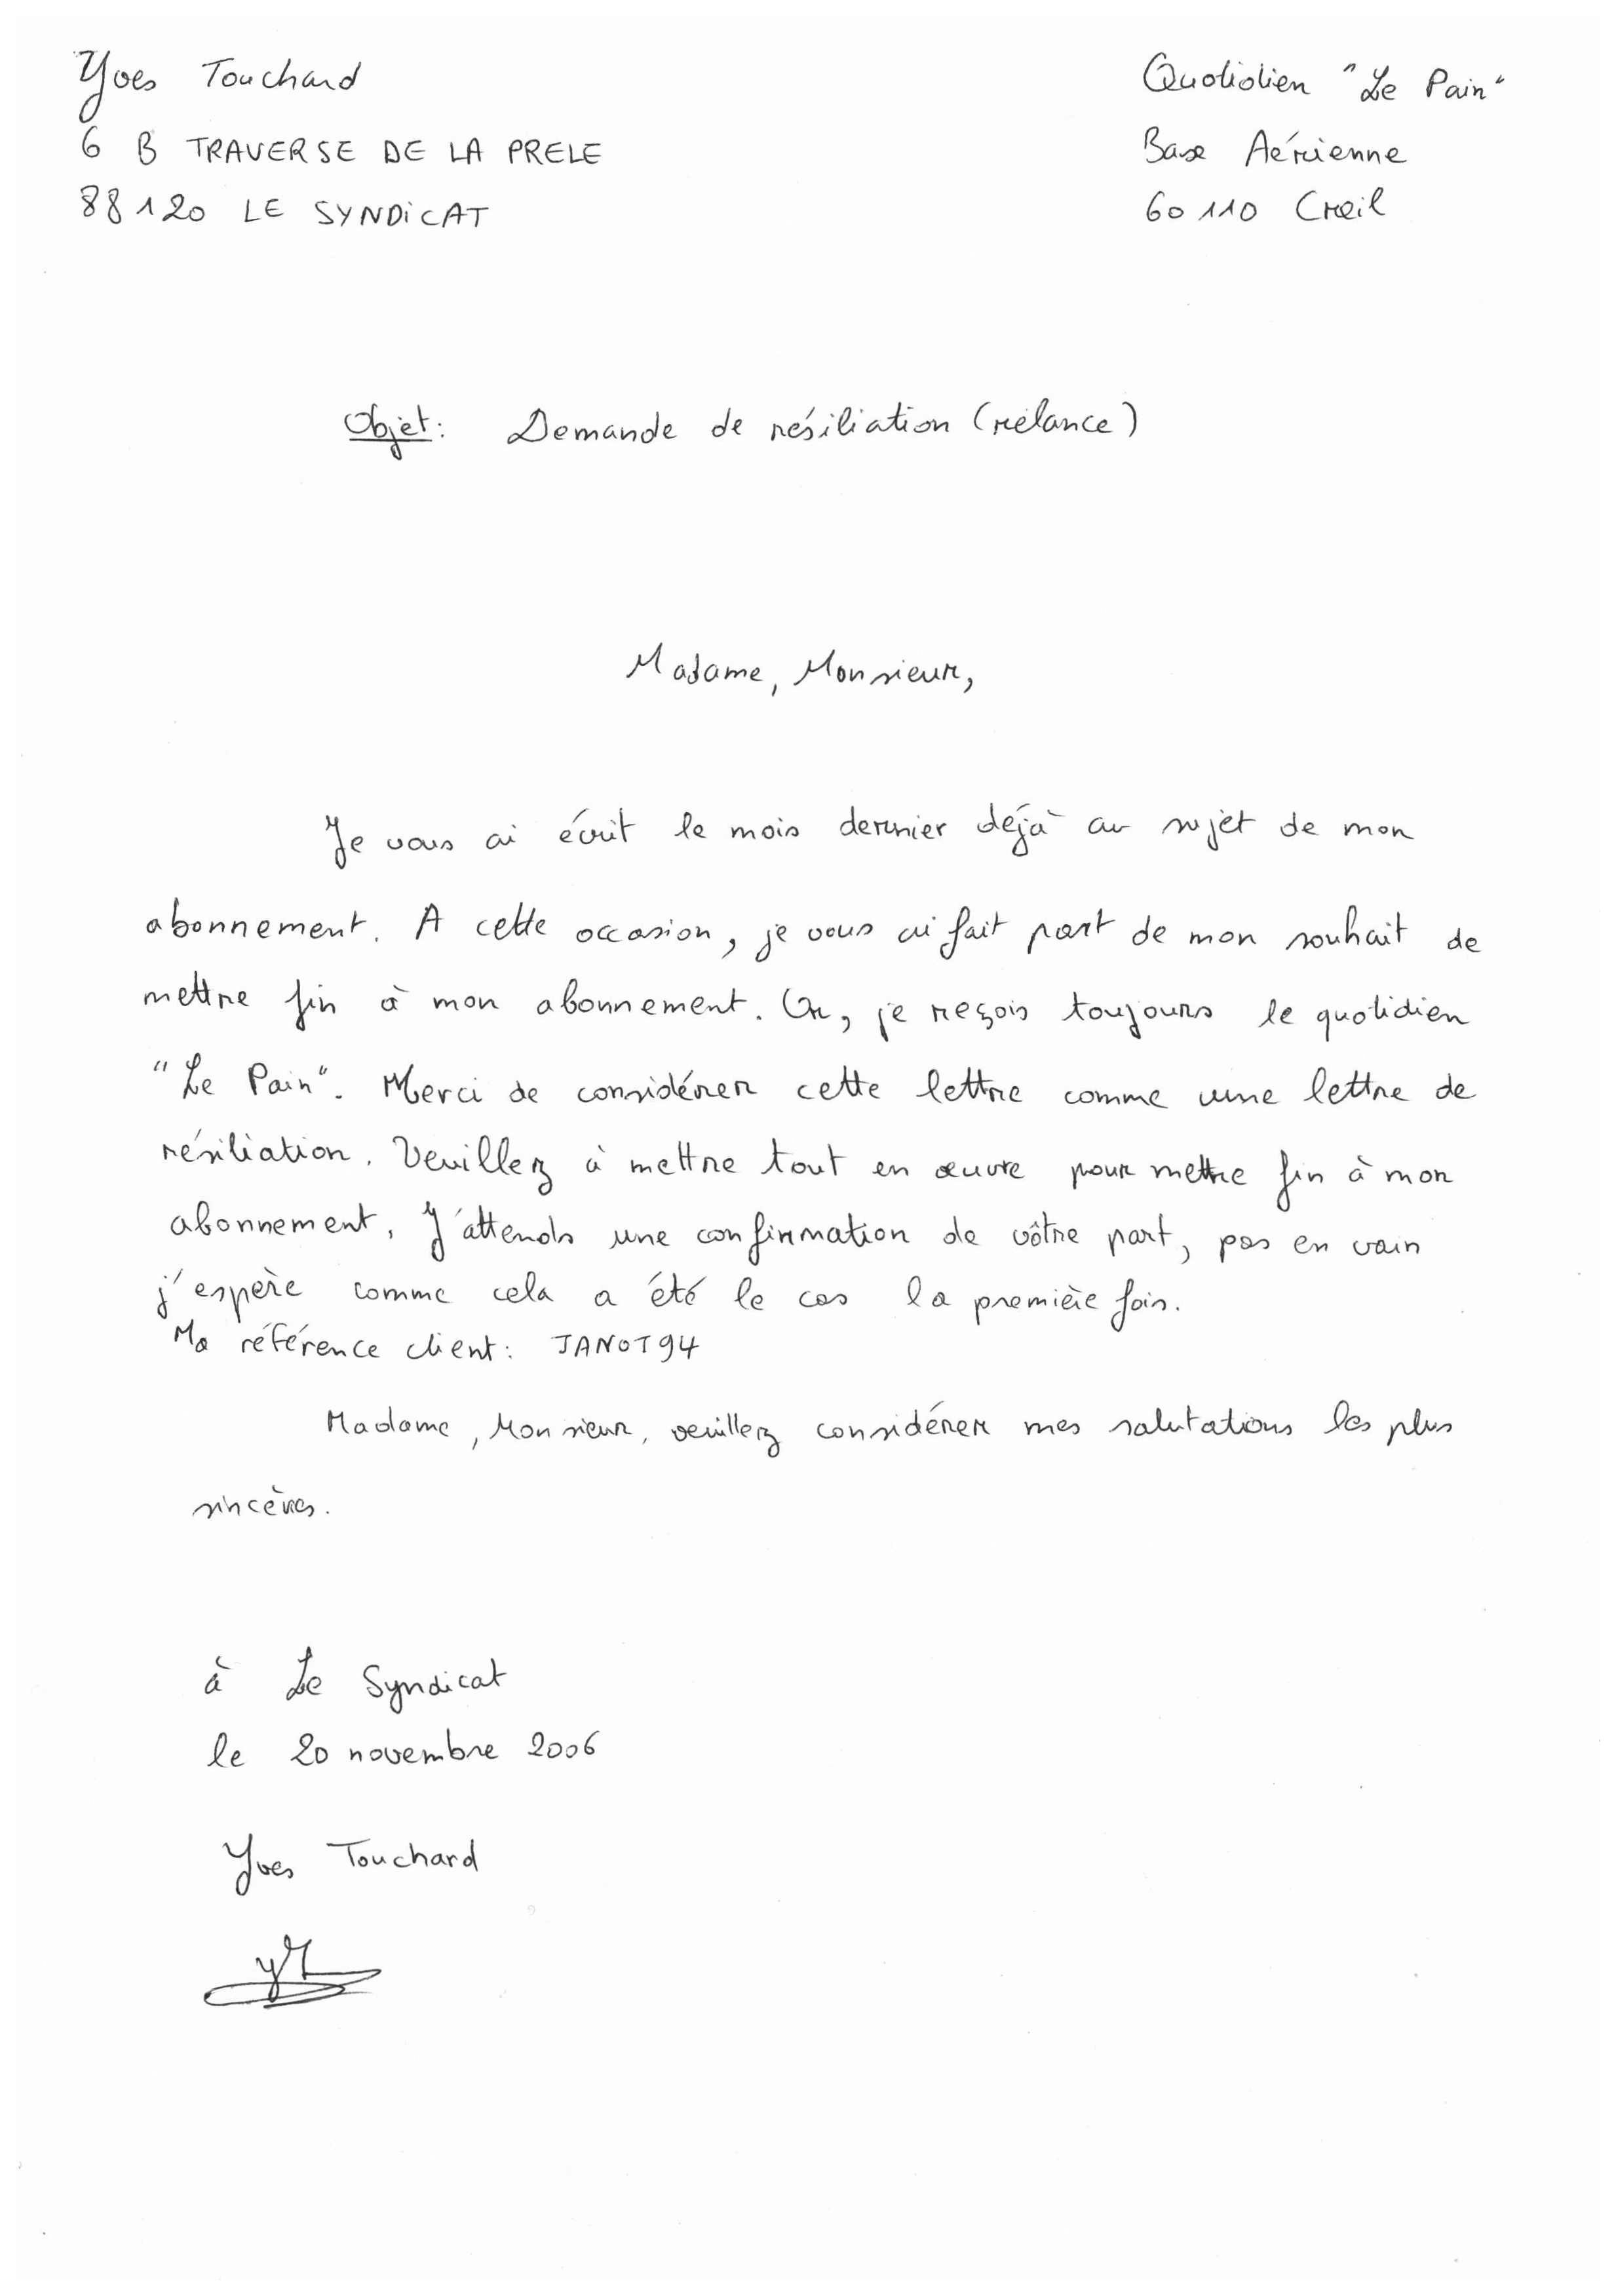 Yves Touchard
6 B TRAVERSE DE LA PRELE
88120 LE SYNDICAT
Quotidien "Le Pain"
Base Aérienne
60110 Creil
Objet : Demande de résiliation (relance)
Madame, Monsieur,
Je vous ai écrit le mois dernier déjà au sujet de mon
abonnement. A cette occasion, je vous ai fait part de mon souhait de
mettre fin à mon abonnement. Or, je reçois toujours le quotidien
"Le Pain". Merci de considérer cette lettre comme une lettre de
résiliation. Veuillez à mettre tout en œuvre pour mettre fin à mon
abonnement. J'attends une confirmation de vôtre part, pas en vain
j'espère comme cela a été le cas la première fois.
Ma référence client : JANOT94
Madame, Monsieur, veuillez considérer mes salutations les plus
sincères.
à Le Syndicat
le 20 novembre 2006
Yves Touchard
YT